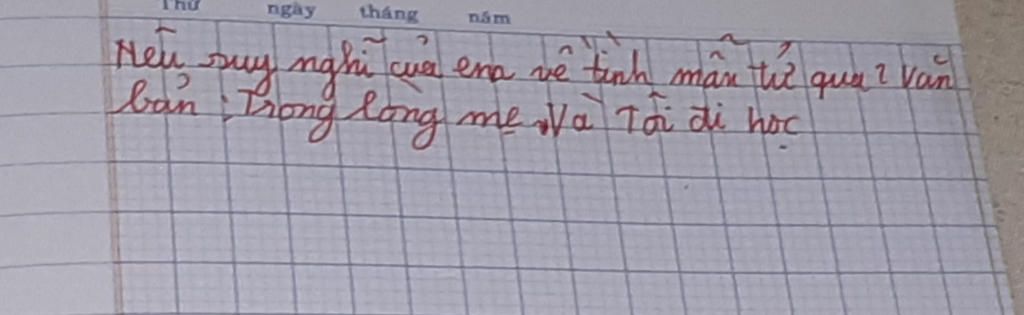 Thứ ngày tháng năm
Nêu suy nghĩ của em về tình mẫu tử qua 2 văn
bản: Trong lòng mẹ, Và Tôi đi học